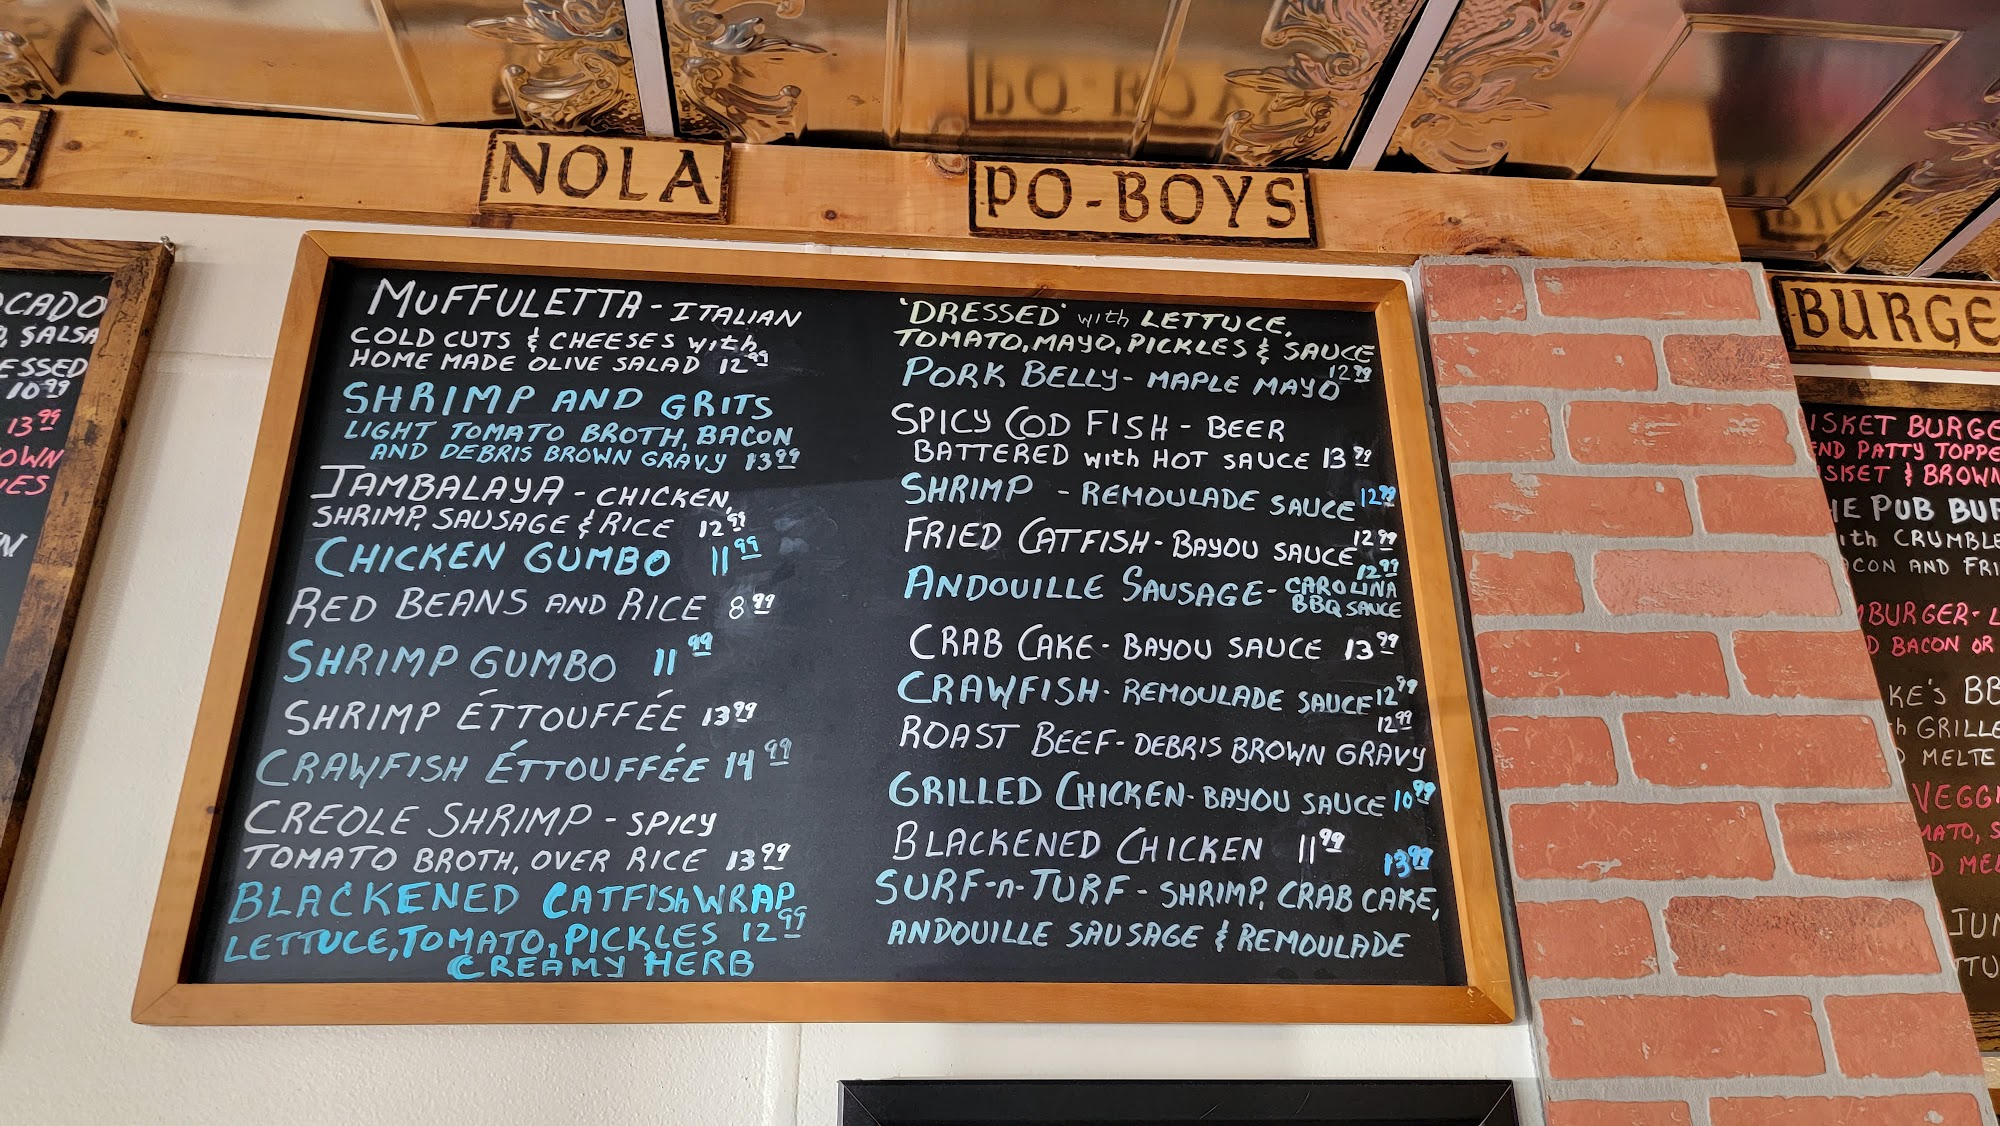 NOLA
PO-BOYS
BURGE
MUFFULETTA - ITALIAN
COLD CUTS & CHEESES with
HOME MADE OLIVE SALAD 12.99
SHRIMP AND GRITS
LIGHT TOMATO BROTH, BACON
AND DEBRIS BROWN GRAVY 13.99
JAMBALAYA - CHICKEN,
SHRIMP, SAUSAGE & RICE 12.99
CHICKEN GUMBO 11.99
RED BEANS AND RICE 8.99
SHRIMP GUMBO 11.99
SHRIMP ÉTTOUFFÉE 13.99
CRAWFISH ÉTTOUFFÉE 14.99
CREOLE SHRIMP - SPICY
TOMATO BROTH, OVER RICE 13.99
BLACKENED CATFISH WRAP
LETTUCE, TOMATO, PICKLES 12.99
CREAMY HERB
'DRESSED' with LETTUCE,
TOMATO, MAYO, PICKLES & SAUCE
PORK BELLY - MAPLE MAYO 12.99
SPICY COD FISH - BEER
BATTERED with HOT SAUCE 13.99
SHRIMP - REMOULADE SAUCE 12.99
FRIED CATFISH - BAYOU SAUCE 12.99
ANDOUILLE SAUSAGE - CAROLINA 12.99
BBQ SAUCE
CRAB CAKE - BAYOU SAUCE 13.99
CRAWFISH - REMOULADE SAUCE 12.99
ROAST BEEF - DEBRIS BROWN GRAVY 12.99
GRILLED CHICKEN - BAYOU SAUCE 10.99
BLACKENED CHICKEN 11.99
SURF-n-TURF - SHRIMP, CRAB CAKE, 13.99
ANDOUILLE SAUSAGE & REMOULADE
OCADO
SALSA
ESSED
10.99
13.99
OWN
IES
ISKET BURGE
END PATTY TOPPE
ISKET & BROWN
HE PUB BUR
ith CRUMBLE
ACON AND FRI
MBURGER - L
D BACON OR
KE'S BB
h GRILLE
D MELTE
VEGG
MATO, S
D MEL
JUN
TTU